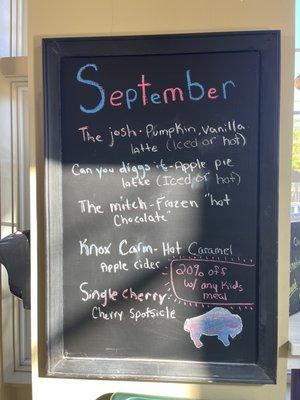 September
The josh - Pumpkin, Vanilla
latte (Iced or hot)
Can you diggs it - Apple pie
latte (Iced or hot)
The mitch - Frozen "hot
Chocolate"
Knox Carm - Hot Caramel
Apple cider
20% off
w/ any kids
meal
Single Cherry -
Cherry Spotsicle